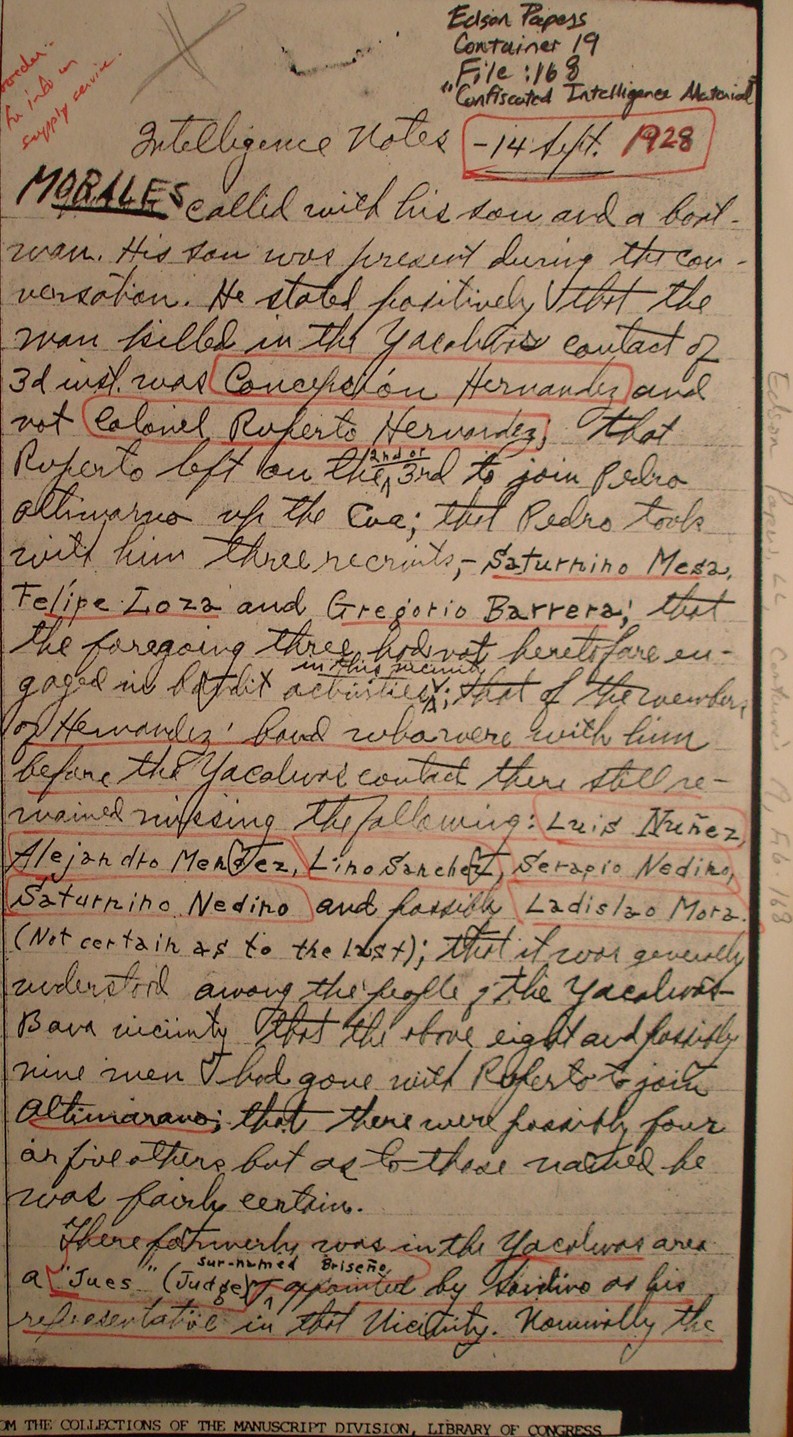 Edson Papers
Container 19
File: 168
"Confiscated Intelligence Material"
for info on
supply service.
Intelligence Notes -14 Sept. 1928
MORALES called with his son and a boat-
man. His son was present during the con-
versation. He stated positively that the
man killed in the Yacalwas contact of
3d inst. was Concepción Hernandez and
not Colonel Ruperto Hernandez; that
Ruperto left on the 2nd or 3rd to join Pedro
Altimarano up the Cua; that Pedro took
with him three recruits,- Saturnino Mesa,
Felípe Loza and Gregorio Barrera; that
the foregoing three had not heretofore en-
gaged in bandit activities in this vicinity; that of the members
of Hernandez' band who were with him
before the Yacalwas contact there still re-
mained missing the following: Luis Nuñez,
Alejandro Mendez, Lino Sanchez, Serapio Nedino,
Saturnino Nedino and possibly Ladislao Mora.
(Not certain as to the last); that it was generally
understood among the people of the Yacalwas-
Bava vicinity that the above eight and possibly
nine men had gone with Ruperto to join
Altimarano; that there were possibly four
or five others but as to those named he
was fairly certain.
There formerly was in the Yacalwas area
a "Jues" (Judge) sur-named Briseño appointed by Sandino as his
representative in that vicinity. Nominally the
Edson Papers, LC, Container 19, F. 168
OM THE COLLECTIONS OF THE MANUSCRIPT DIVISION, LIBRARY OF CONGRESS